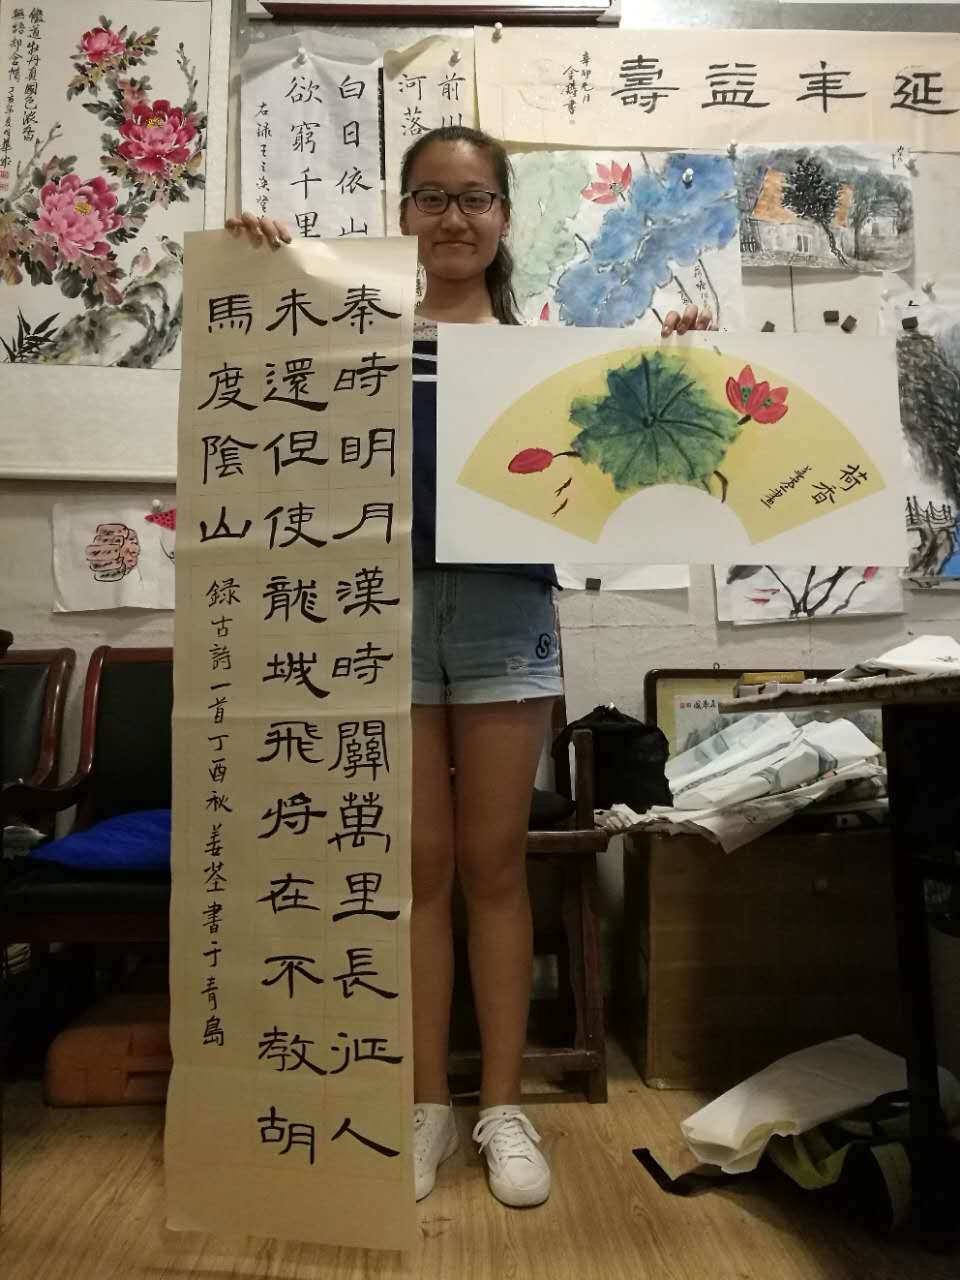 延年益壽
辛卯元月
前川
河落
白日依山
欲窮千里
右录王之渙登
道牡丹真國色濃香
無語却含情
秦時明月漢時關萬里長征人
未還但使龍城飛將在不教胡
馬度陰山
録古詩一首丁酉秋姜荃書于青島
荷香
姜荃畫